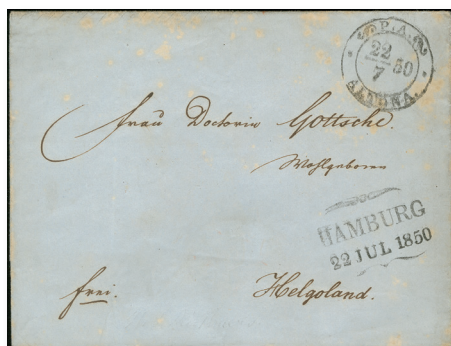 P.A.
22
7
50
ALTONA.
Frau Doctorin Gottsche.
Wohlgeboren
HAMBURG
22 JUL 1850
frei.
Helgoland.